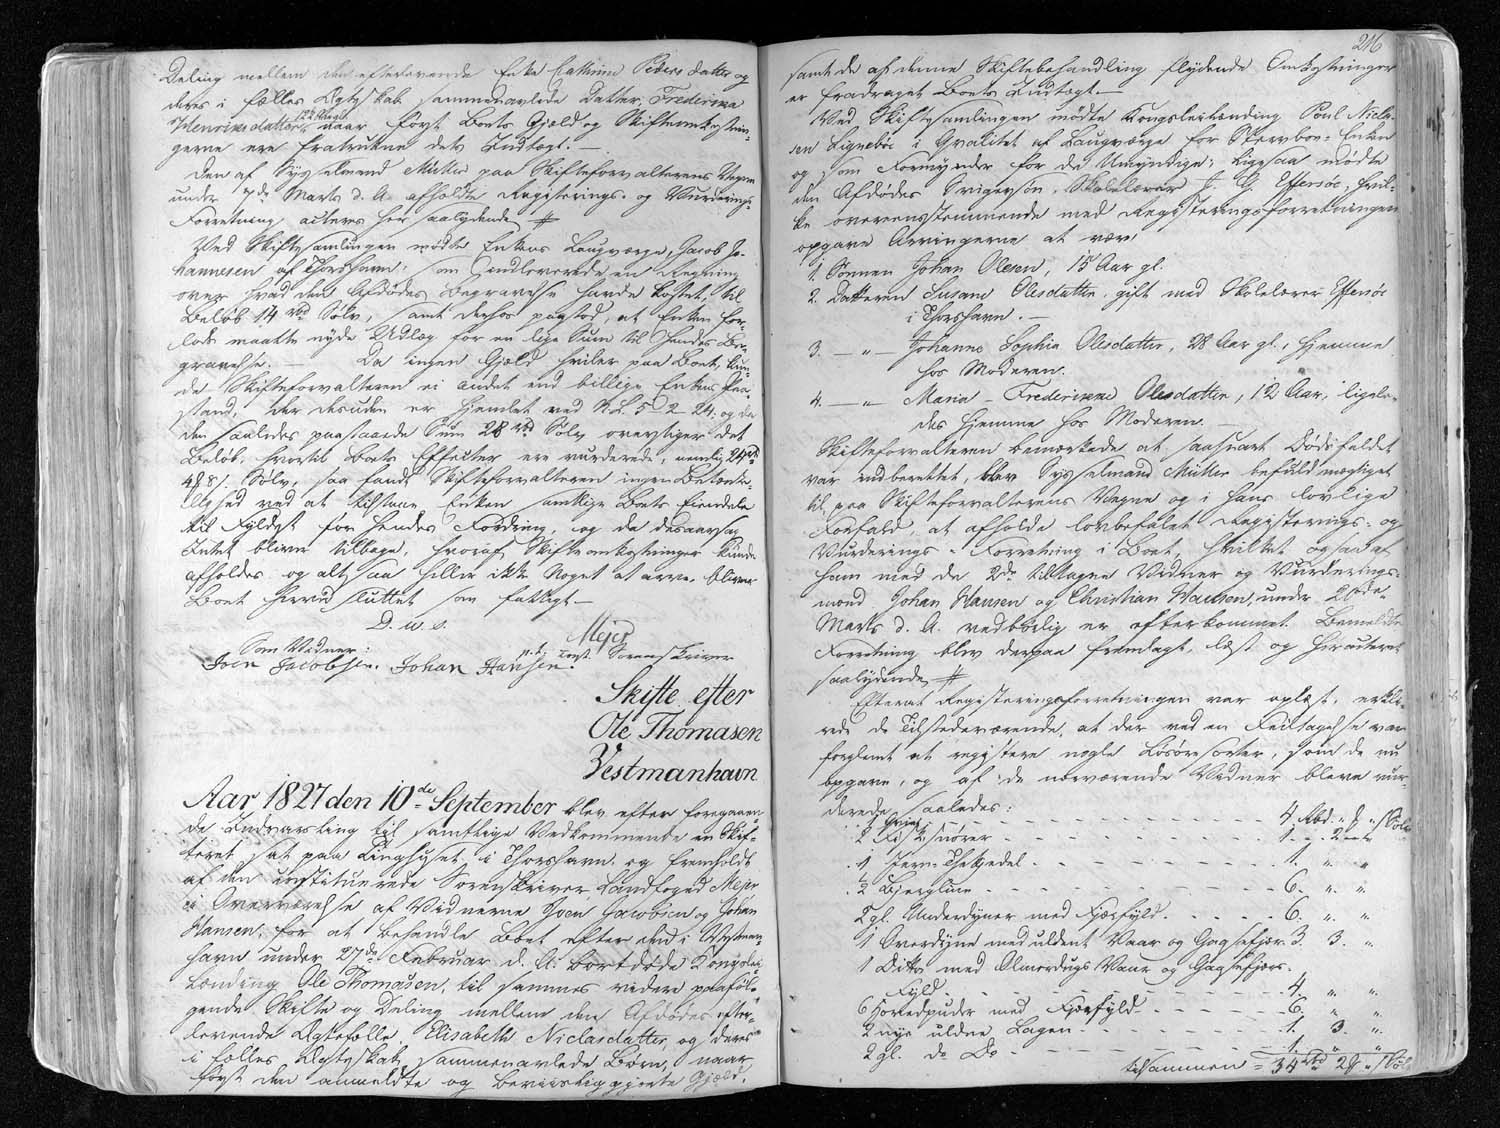 Deling mellem den efterlevende Enke Cathrine Peders datter og
deres i fælles Ægteskab sammenavlede Datter, Frederikka
Henriksdatter, 22 Aar gl. naar først Boets Gjæld og Skifteomkostnin-
gerne ere fratrukne dets Indtægt. —
Den af Sysselmand Müller paa Skifteforvalterens Vegne
under 7de Marts d. A. afholdte Registerings- og Vurderings-
Forretning acteres her saalydende #
Ved Skiftesamlingen mødte Enkens Laugværge, Jacob Jo-
hannesen af Thorshavn: som indleverede en Regning
over hvad den Afdødes Begravelse havde kostet, til
Beløb 14 rbd Sølv, samt derhos paastod, at Enken for-
lods maatte nyde Udlæg for en lige Sum til hendes Be-
gravelse. — Da ingen Gjæld hviler paa Boet, kun-
de Skifteforvalteren ei andet end billige Enkens Paa-
stand, der desuden er hjemlet ved N. L. 5-2-24; og da
den saaledes paastaaede Sum 28 rbd Sølv overstiger det
Beløb, hvortil Boets Effecter ere vurderede, nemlig 24 rbd
48 s. Sølv, saa fandt Skifteforvalteren ingen Betænke-
lighed ved at tilstaae Enken samtlige Boets Eiendele
til Fyldest for hendes Fordring, og da desaarsag
Intet bliver tilbage, hvoraf Skifteomkostninger kunde
afholdes og altsaa heller ikke Noget at arve, bliver
Boet herved sluttet som fattigt —
D. u. s.
Mejer
Som Vidner: const. Sorenskriver
Joen Jacobsen. Johan Hansen.
Skifte efter
Ole Thomasen
Vestmanhavn
Aar 1827 den 10de September blev efter foregaaen-
de Indvarsling til samtlige Vedkommende en Skif-
teret sat paa Tinghuset i Thorshavn og fremholdt
af den constituerede Sorenskriver, Landfoged Mejer
i Overværelse af Vidnerne Joen Jacobsen og Johan
Hansen, for at behandle Boet efter den i Vestman-
havn under 27de Februar d. A. bortdøde Kongslei-
lænding Ole Thomasen, til sammes videre paaføl-
gende Skifte og Deling mellem den Afdødes efter-
levende Ægtefælle, Elisabeth Niclasdatter, og deres
i fælles Ægteskab sammenavlede Børn, naar
først den anmeldte og beviisliggjorte Gjæld,
216
samt de af denne Skiftebehandling flydende Omkostninger
er fradraget Boets Indtægt. —
Ved Skiftesamlingen mødte Kongsleilænding Poul Nicla-
sen Lignebøe i Qvalitet af Laugværge for Stervboe-Enken
og som Formynder for de Umyndige; ligesaa mødte
den Afdødes Svigersøn, Skolelærer J. G. Effersøe, hvil-
ke overensstemmende med Registeringsforretningen
opgave Arvingerne at være:
1. Sønnen Johan Olesen, 15 Aar gl.
2. Datteren Susane Olesdatter, gift med Skolelærer Effersøe
i Thorshavn. —
3. — " — Johanne Sophia Olesdatter, 28 Aar gl., hjemme
hos Moderen.
4. — " — Maria Frederikke Olesdatter, 12 Aar, ligele-
des hjemme hos Moderen. —
Skifteforvalteren bemærkede at saasnart Dødsfaldet
var indberettet, blev Sysselmand Müller befuldmægtiget
til, paa Skifteforvalterens Vegne og i hans lovlige
Forfald, at afholde lovbefalet Registerings- og
Vurderings-Forretning i Boet, hvilket ogsaa af
ham med de 2de tiltagne Vidner og Vurderings-
mænd Johan Hansen og Christian under
Marts d. A. vedbørlig er efterkommet. Bemeldte
Forretning blev derpaa fremlagt, læst og her acteret
saalydende #
Efterat Registeringsforretningen var oplæst, erklæ-
rede de Tilstedeværende, at der ved en Feiltagelse var
forglemt at registere nogle Løsøresorter, som de nu
opgave, og af de nærværende Vidner bleve vur-
derede saaledes:
4 Rbd. " s. " Sølv
2 snører 1. 2
1 Jern-Theekedel 1. " "
2 Bjergline 6. " "
2 gl. Underdyner med Fjærfyld 6. " "
1 Overdyne med uldent Vaar og Gaasefjær 3. 3. "
1 Ditto med Olmerdugs Vaar og Gaasefjærs-
Fyld 4. " "
6 Hovedpuder med Fjærfyld 6. " "
2 nye uldne Lagen 1. 3. "
2 gl. do do 1. " "
tilsammen = 34 rbd 2 s. Sølv